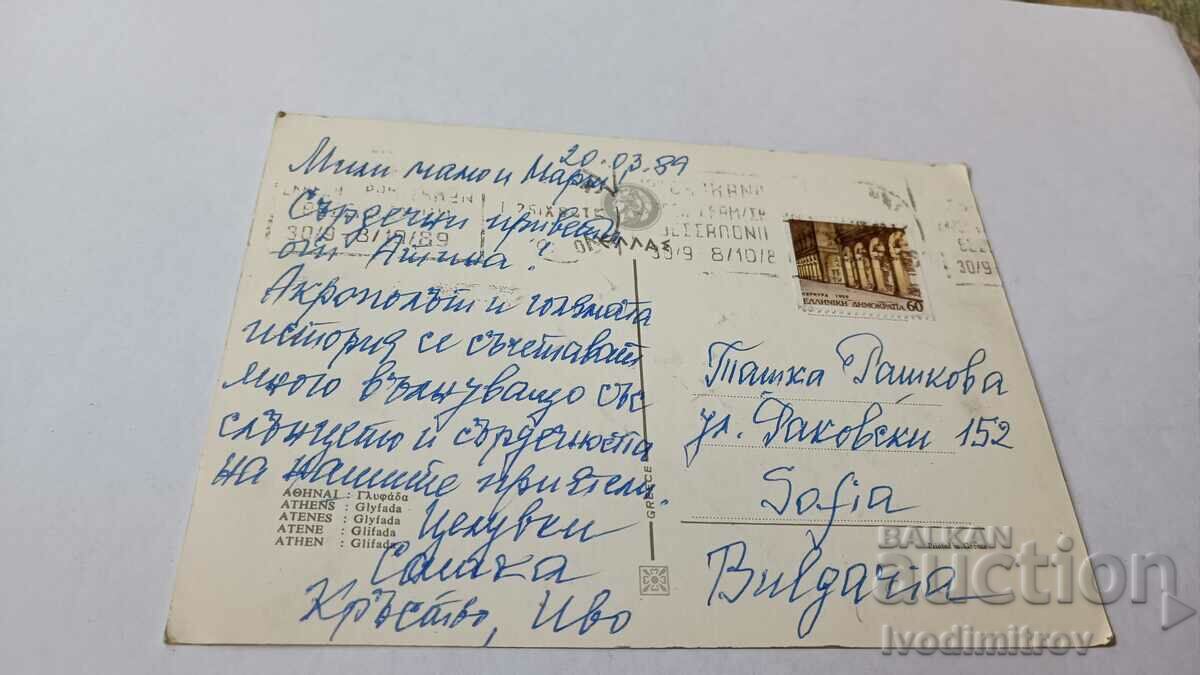 20.03.89
Мили мамо и Мари,
Сърдечни привети
от Атина!
Акрополът и голямата
история се съчетават
много вълнуващо със
слънцето и сърдечността
на нашите приятели.
Целувки
Кръстьо, Иво
ΑΘΗΝΑΙ : Γλυφάδα
ATHENS : Glyfada
ATENES : Glyfada
ATENE : Glifada
ATHEN : Glifada
GREECE
30/9 - 8/10/89
ΕΛΛΑΣ
30/9 8/10/8
30/9
ΚΕΡΚΥΡΑ 1988
ΕΛΛΗΝΙΚΗ ΔΗΜΟΚΡΑΤΙΑ 60
Ташка Рашкова
ул. Раковски 152
Sofia
Bulgaria
Printed in Greece
BALKAN
auction
Ivodimitrov